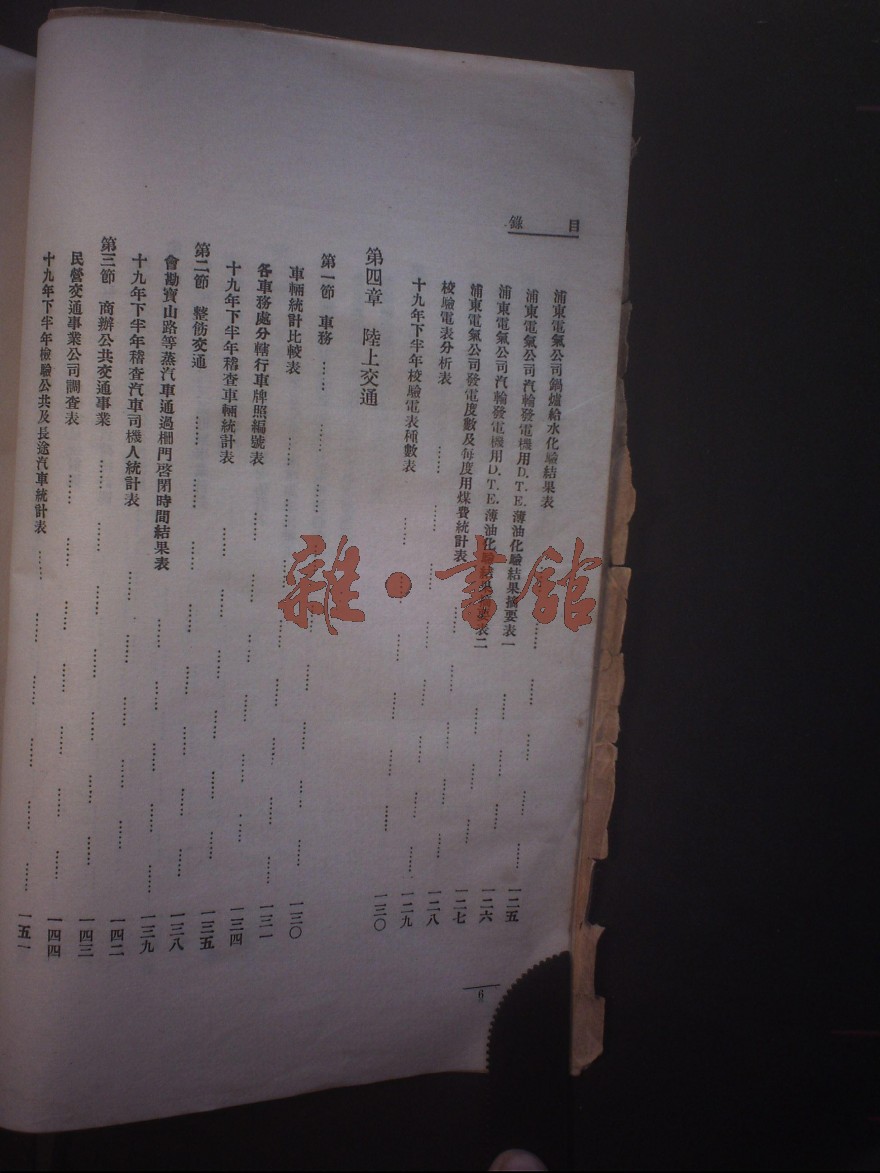 目錄
浦東電氣公司鍋爐給水化驗結果表……一二五
浦東電氣公司汽輪發電機用D.T.E.薄油化驗結果摘要表一……一二六
浦東電氣公司汽輪發電機用D.T.E.薄油化驗結果摘要表二……一二七
浦東電氣公司發電度數及每度用煤費統計表……一二八
校驗電表分析表……一二九
十九年下半年校驗電表種數表……一三〇
第四章 陸上交通
第一節 車務……一三〇
車輛統計比較表……一三一
各車務處分轄行車牌照編號表……一三四
十九年下半年稽查車輛統計表……一三五
第二節 整飭交通……一三八
會勘寶山路等蒸汽車通過柵門啓閉時間結果表……一三九
十九年下半年稽查汽車司機人統計表……一四二
第三節 商辦公共交通事業……一四三
民營交通事業公司調查表……一四四
十九年下半年檢驗公共及長途汽車統計表……一五一
6
雜·書館